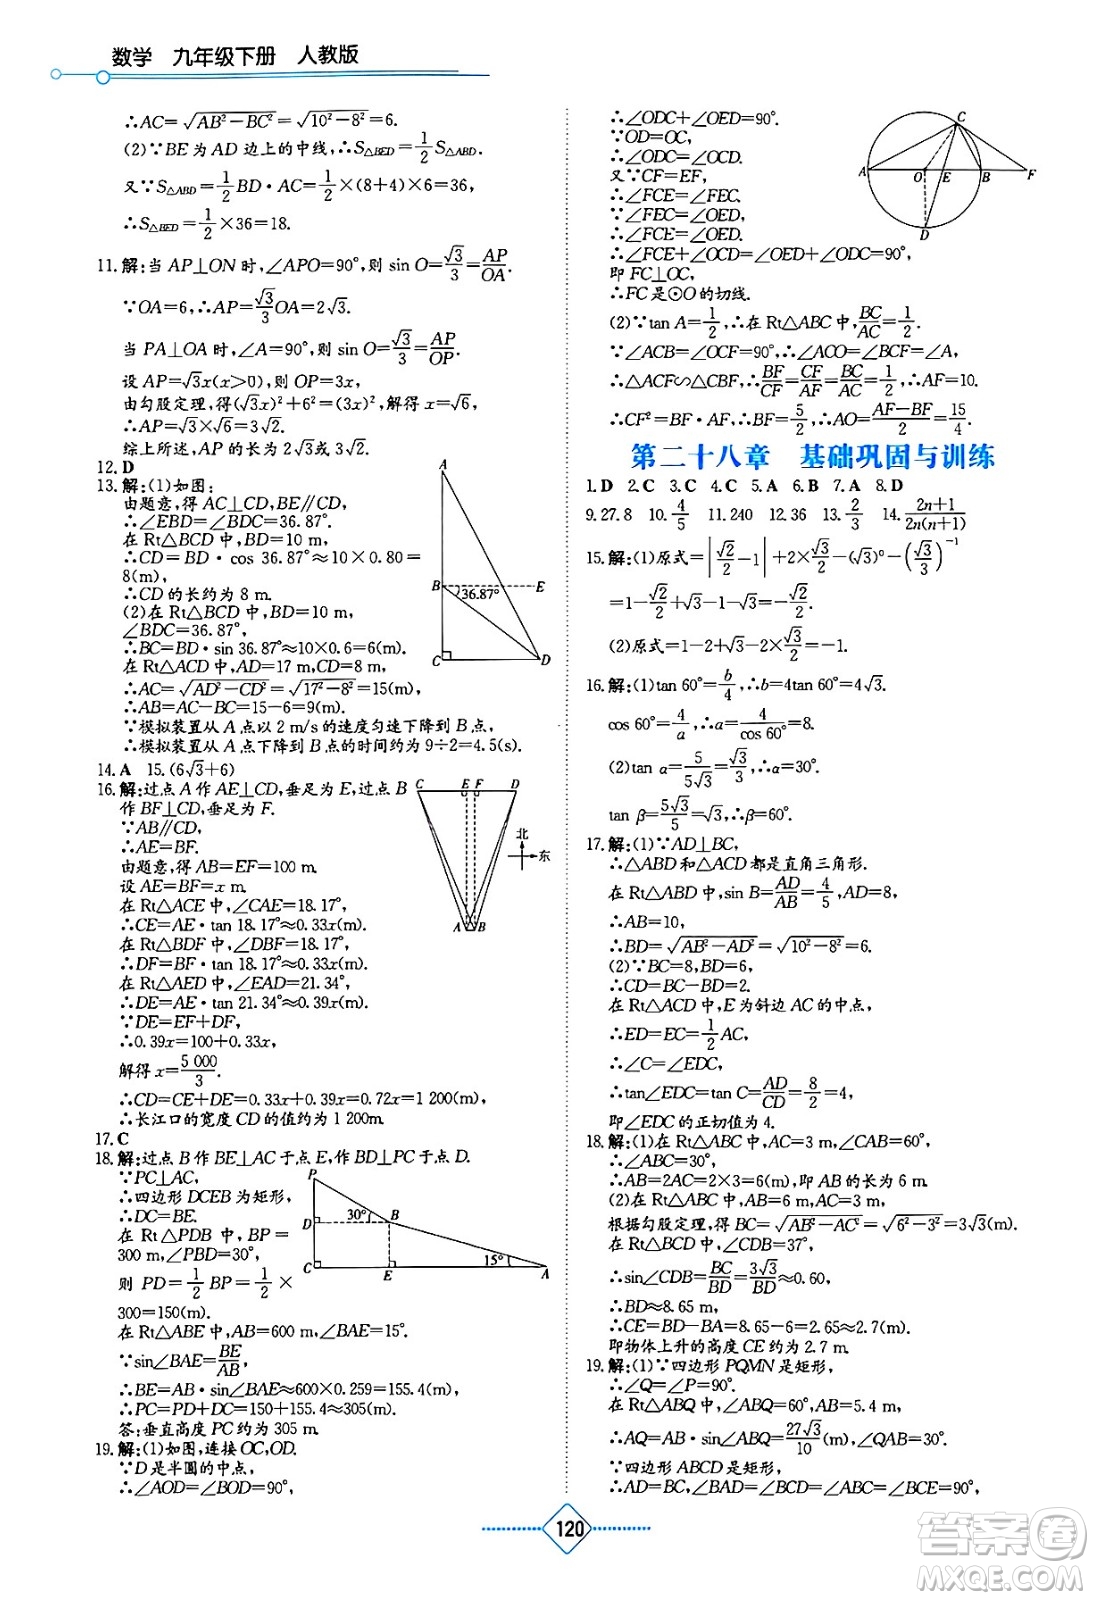 数学 九年级下册 人教版
∴AC=√(AB²−BC²)=√(10²−8²)=6.
(2)∵BE为AD边上的中线,∴S△BED=1/2 S△ABD.
又∵S△ABD=1/2 BD·AC=1/2×(8+4)×6=36,
∴S△BED=1/2×36=18.
11.解:当AP⊥ON时,∠APO=90°,则sin O=√3/3=AP/OA.
∵OA=6,∴AP=√3/3 OA=2√3.
当PA⊥OA时,∠A=90°,则sin O=√3/3=AP/OP.
设AP=√3x(x>0),则OP=3x,
由勾股定理,得(√3x)²+6²=(3x)²,解得x=√6,
∴AP=√3×√6=3√2.
综上所述,AP的长为2√3或3√2.
12.D
13.解:(1)如图:
由题意,得AC⊥CD,BE∥CD,
∴∠EBD=∠BDC=36.87°.
在Rt△BCD中,BD=10 m,
∴CD=BD·cos 36.87°≈10×0.80=
8(m),
∴CD的长约为8 m.
(2)在Rt△BCD中,BD=10 m,
∠BDC=36.87°,
∴BC=BD·sin 36.87°≈10×0.60=6(m).
在Rt△ACD中,AD=17 m,CD=8 m,
∴AC=√(AD²−CD²)=√(17²−8²)=15(m),
∴AB=AC−BC=15−6=9(m).
∵模拟装置从A点以2 m/s的速度匀速下降到B点,
∴模拟装置从A点下降到B点的时间约为9÷2=4.5(s).
A
B
36.87°
E
C
D
14.A 15.(6√3+6)
16.解:过点A作AE⊥CD,垂足为E,过点B
作BF⊥CD,垂足为F.
∵AB∥CD,
∴AE=BF.
由题意,得AB=EF=100 m.
设AE=BF=x m.
在Rt△ACE中,∠CAE=18.17°,
∴CE=AE·tan 18.17°≈0.33x(m).
在Rt△BDF中,∠DBF=18.17°,
∴DF=BF·tan 18.17°≈0.33x(m).
在Rt△AED中,∠EAD=21.34°,
∴DE=AE·tan 21.34°≈0.39x(m).
∵DE=EF+DF,
∴0.39x=100+0.33x,
解得x=5 000/3.
∴CD=CE+DE=0.33x+0.39x=0.72x=1 200(m),
∴长江口的宽度CD的值约为1 200m.
C E F D
北
东
A B
17.C
18.解:过点B作BE⊥AC于点E,作BD⊥PC于点D.
∵PC⊥AC,
∴四边形DCEB为矩形,
∴DC=BE.
在Rt△PDB中,BP=
300 m,∠PBD=30°,
则PD=1/2 BP=1/2×
300=150(m).
在Rt△ABE中,AB=600 m,∠BAE=15°,
∵sin∠BAE=BE/AB,
∴BE=AB·sin∠BAE≈600×0.259=155.4(m),
∴PC=PD+DC=150+155.4≈305(m).
答:垂直高度PC约为305 m.
P
D
30°
B
C
E
15°
A
19.解:(1)如图,连接OC,OD.
∵D是半圆的中点,
∴∠AOD=∠BOD=90°,
∴∠ODC+∠OED=90°.
∵OD=OC,
∴∠ODC=∠OCD.
又∵CF=EF,
∴∠FCE=∠FEC.
∵∠FEC=∠OED,
∴∠FCE=∠OED.
∴∠FCE+∠OCD=∠OED+∠ODC=90°,
即FC⊥OC,
∴FC是⊙O的切线.
(2)∵tan A=1/2,∴在Rt△ABC中,BC/AC=1/2.
∵∠ACB=∠OCF=90°,∴∠ACO=∠BCF=∠A,
∴△ACF∽△CBF,∴BF/CF=CF/AF=BC/AC=1/2,∴AF=10.
∴CF²=BF·AF,∴BF=5/2,∴AO=(AF−BF)/2=15/4.
C
A O E B F
D
第二十八章 基础巩固与训练
1.D 2.C 3.C 4.C 5.A 6.B 7.A 8.D
9.27.8 10.4/5 11.240 12.36 13.2/3 14.(2n+1)/(2n(n+1))
15.解:(1)原式=|√2/2−1|+2×√3/2−(√3)⁰−(√3/3)⁻¹
=1−√2/2+√3−1−√3=−√2/2.
(2)原式=1−2+√3−2×√3/2=−1.
16.解:(1)tan 60°=b/4,∴b=4tan 60°=4√3.
cos 60°=4/a,∴a=4/cos 60°=8.
(2)tan α=5/(5√3)=√3/3,∴α=30°.
tan β=5√3/5=√3,∴β=60°.
17.解:(1)∵AD⊥BC,
∴△ABD和△ACD都是直角三角形.
在Rt△ABD中,sin B=AD/AB=4/5,AD=8,
∴AB=10,
∴BD=√(AB²−AD²)=√(10²−8²)=6.
(2)∵BC=8,BD=6,
∴CD=BC−BD=2.
在Rt△ACD中,E为斜边AC的中点,
∴ED=EC=1/2 AC,
∴∠C=∠EDC,
∴tan∠EDC=tan C=AD/CD=8/2=4,
即∠EDC的正切值为4.
18.解:(1)在Rt△ABC中,AC=3 m,∠CAB=60°,
∴∠ABC=30°,
∴AB=2AC=2×3=6(m),即AB的长为6 m.
(2)在Rt△ABC中,AB=6 m,AC=3 m,
根据勾股定理,得BC=√(AB²−AC²)=√(6²−3²)=3√3(m).
在Rt△BCD中,∠CDB=37°,
∴sin∠CDB=BC/BD=3√3/BD≈0.60,
∴BD≈8.65 m,
∴CE=BD−BA=8.65−6=2.65≈2.7(m).
即物体上升的高度CE约为2.7 m.
19.解:(1)∵四边形PQMN是矩形,
∴∠Q=∠P=90°.
在Rt△ABQ中,∠ABQ=60°,AB=5.4 m,
∴AQ=AB·sin∠ABQ=27√3/10(m),∠QAB=30°.
∵四边形ABCD是矩形,
∴AD=BC,∠BAD=∠ABC=∠BCD=∠ADC=90°,
120
答案卷
MXQE.COM